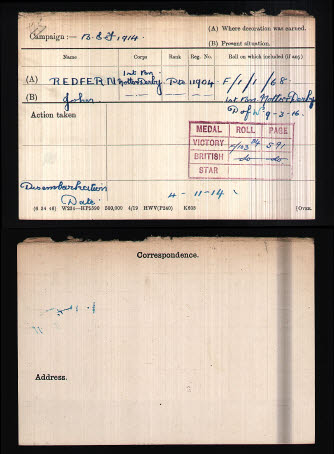 Campaign :— B.E.F. 1914.
(A) Where decoration was earned.
(B) Present situation.
Name Corps Rank Reg. No. Roll on which included (if any)
(A) REDFERN 1st Bn. Notts&Derby Pte 11904 F/1/1/68
(B) John 1st Bn Notts&Derby
Action taken D of W 9-3-15.
MEDAL ROLL PAGE
VICTORY 591
BRITISH do do
STAR
Disembarkation
Date 4-11-14
(6 34 46) W234—HP5590 500,000 4/19 HWV(P240) K608 [OVER.
Correspondence.
Address.